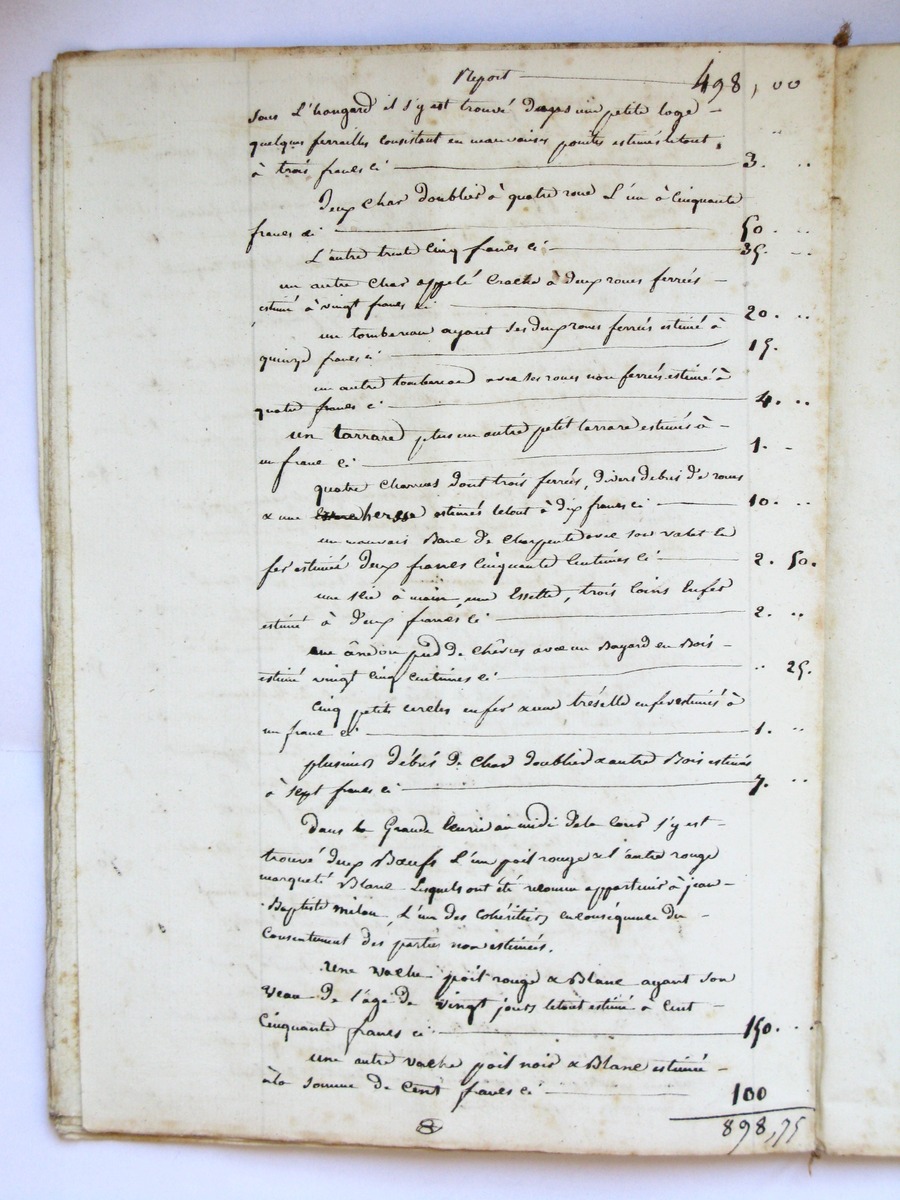 Report 498,00
sous L'hangard il s'y est trouvé dans une petite loge
quelques ferrailles consistant en mauvaises pointes estimés letout
à trois francs ci 3. ..
Deux char doublier à quatre roue L'un à Cinquante
francs ci 50. ..
L'autre trente Cinq francs ci 35. ..
un autre char appelé à deux roues ferrées
estimé à vingt francs ci 20. ..
un tombereau ayant ses deux roues ferrées estimé à
quinze francs ci 15.
un autre tombereau avec ses roues non ferrées estimé à
quatre francs ci 4. ..
un tarrare plus un autre petit tarrare estimés à
un franc ci 1. ..
quatre charrues dont trois ferrées, divers debris de roues
& une herse estimés letout à dix francs ci 10. ..
un mauvais Banc de Charpente avec son valet de
fer estimée deux francs Cinquante Centimes ci 2. 50.
une scie à main, une Essette, trois Coins Enfer
estimé à deux francs ci 2. ..
pied de Chèvres avec un Bayard en Bois
estimé vingt cinq Centimes ci .. 25.
Cinq petits cercles en fer & une en fer estimés à
un franc ci 1. ..
plusieurs débris de Char doublier & autre Bois estimés
à sept francs ci 7. ..
Dans la Grande Ecurie au midi dela Cour s'y est
trouvé deux Bœufs L'un poil rouge & l'autre rouge
marqueté Blanc Lesquels ont été reconnu appartenir à jean
Baptiste milou, L'un des Cohéritiers en conséquence du
Consentement des parties non estimés.
Une vache poil rouge & Blanc ayant son
Veau de l'age de vingt jours letout estimé à Cent
Cinquante francs ci 150. ..
une autre vache poil noir & Blanc estimée
àla somme de Cent francs ci 100
898,75